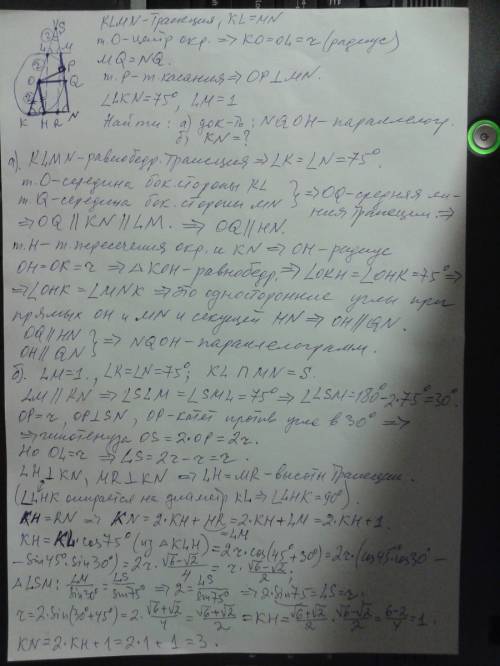 KLMN-трапеция, KL=MN
т.O-центр окр. => KO=OL=r (радиус)
MQ=NQ.
т.P-т.касания => OP⊥MN.
∠LKN=75°, LM=1
Найти: а) док-ть: NQOH-параллелогр.
б) KN=?
S
L M
P
O Q
K H R N
а) KLMN-равнобедр. трапеция => ∠K=∠N=75°.
т.O-середина бок.стороны KL
т.Q-середина бок.стороны MN } => OQ-средняя ли-
ния трапеции. =>
=> OQ || KN || LM. => OQ || HN.
т.H-т.пересечения окр. и KN => OH-радиус
OH=OK=r => △KOH-равнобедр. => ∠OKH=∠OHK=75° =>
=> ∠OHK=∠MNK => это односторонние углы при
прямых OH и MN и секущей HN => OH || QN.
OQ || HN
OH || QN } => NQOH-параллелограмм.
б). LM=1., ∠K=∠N=75°; KL ∩ MN=S.
LM || KN => ∠SLM=∠SML=75° => ∠LSM=180°-2·75°=30°.
OP=r, OP⊥SN, OP-катет против угла в 30° =>
=> гипотенуза OS=2·OP=2r.
Но OL=r => LS=2r-r=r.
LH⊥KN, MR⊥KN => LH=MR-высоты трапеции.
(∠LHK опирается на диаметр KL => ∠LHK=90°).
KH=RN => KN=2·KH+HR=2·KH+LM=2·KH+1.
=LM
KH=KL·cos75° (из △KLH)=2r·cos(45°+30°)=2r·(cos45°·cos30°-
-sin45°·sin30°)=2r·(√6-√2)/4=r·(√6-√2)/2;
△LSM: LM/sin30°=LS/sin75° => 2=LS/sin75° => 2·sin75=LS=r;
r=2·sin(30°+45°)=2·(√6+√2)/4=(√6+√2)/2 => KH=(√6+√2)/2·(√6-√2)/2=(6-2)/4=1.
KN=2·KH+1=2·1+1=3.